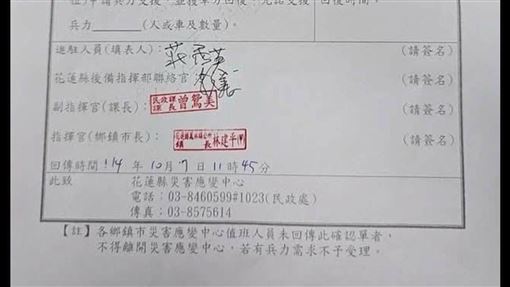 位)申請兵力支援,並獲軍方回復,允諾支援回復時間。
兵力______(人或車及數量)。
進駐人員(填表人): (請簽名)
花蓮縣後備指揮部聯絡官: (請簽名)
副指揮官(課長): 民政課課長 曾鴛美 (請簽名)
指揮官(鄉鎮市長): 長 林建平 (請簽名)
回傳時間:114 年 10 月 7 日 11 時 45 分
此致 花蓮縣災害應變中心
電話:03-8460599#1023(民政處)
傳真:03-8575614
【註】各鄉鎮市災害應變中心值班人員未回傳此確認單者,
不得離開災害應變中心,若有兵力需求不予受理。